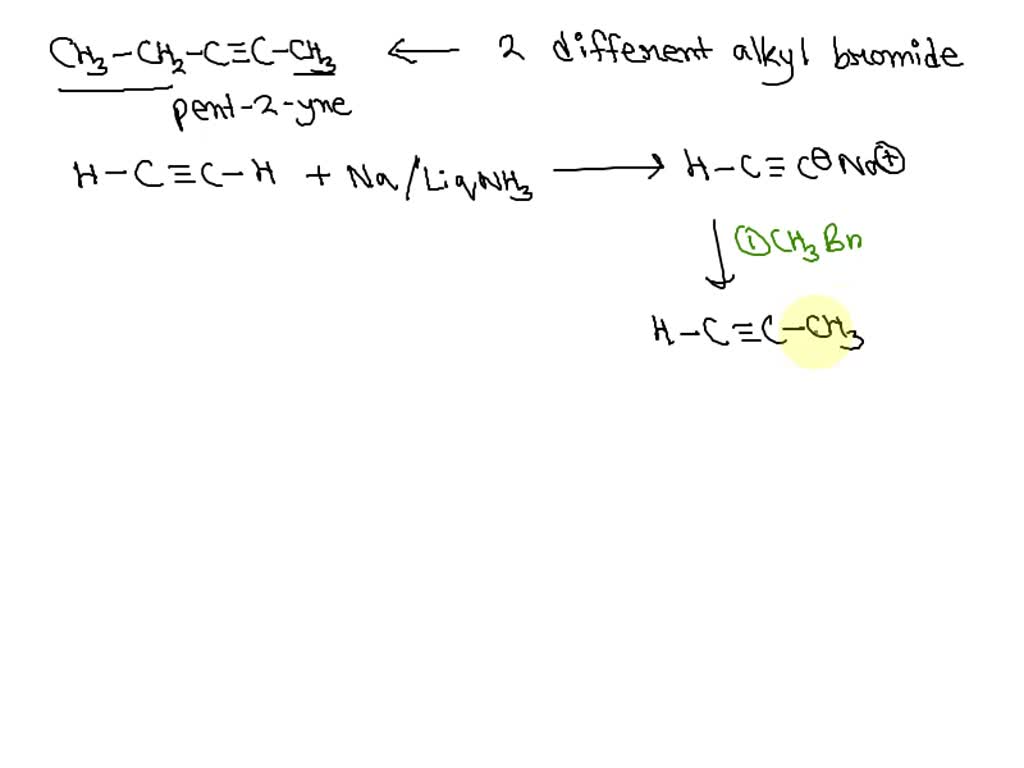 CH₃-CH₂-C≡C-CH₃ ← 2 different alkyl bromide
pent-2-yne
H-C≡C-H + Na/LiqNH₃ → H-C≡C⊖Na⊕
↓ ①CH₃Br
H-C≡C-CH₃